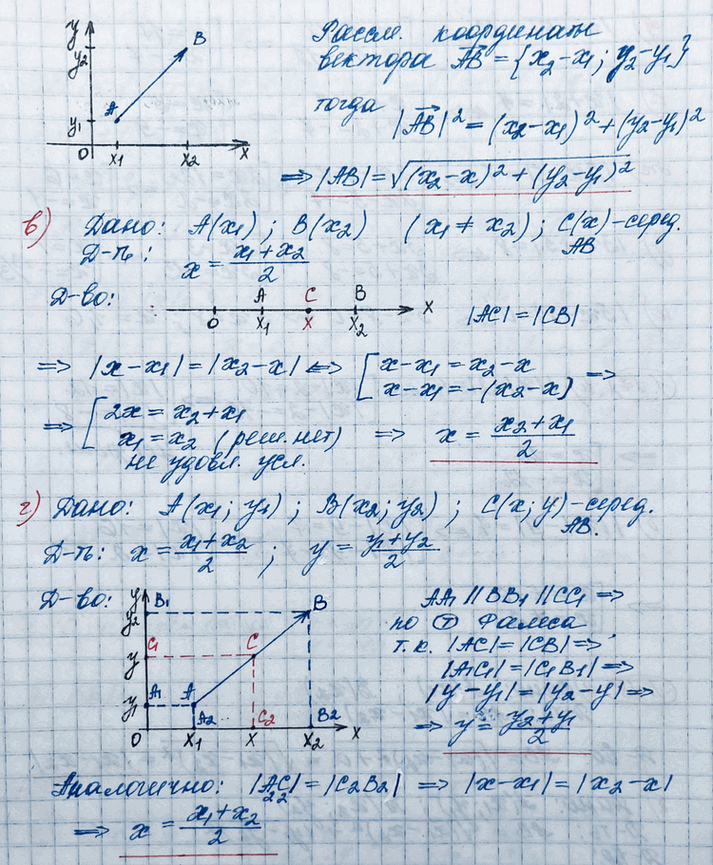 y
y₂
B
A
y₁
0 x₁ x₂ x
Рассм. координаты
вектора AB⃗ = {x₂-x₁; y₂-y₁}
тогда
|AB⃗|² = (x₂-x₁)² + (y₂-y₁)²
=> |AB| = √((x₂-x)² + (y₂-y₁)²)
в) Дано: A(x₁); B(x₂) (x₁ ≠ x₂); C(x)-серед.
AB
Д-ть: x = (x₁+x₂)/2
Д-во:
A C B
0 x₁ x x₂ x
|AC| = |CB|
=> |x-x₁| = |x₂-x| <=> [ x-x₁ = x₂-x
x-x₁ = -(x₂-x) =>
=> [ 2x = x₂+x₁
x₁ = x₂ (реш. нет) => x = (x₂+x₁)/2
не удовл. усл.
г) Дано: A(x₁; y₁); B(x₂; y₂); C(x; y)-серед.
AB.
Д-ть: x = (x₁+x₂)/2; y = (y₁+y₂)/2
Д-во:
y B₁
y₂ B
C₁
y C
A₁ A
y₁
A₂ C₂ B₂
0 x₁ x x₂ x
AA₁ || BB₁ || CC₁ =>
по Т Фалеса
т.к. |AC| = |CB| =>
|A₁C₁| = |C₁B₁| =>
|y-y₁| = |y₂-y| =>
=> y = (y₂+y₁)/2
Аналогично: |A₂C₂| = |C₂B₂| => |x-x₁| = |x₂-x|
=> x = (x₁+x₂)/2